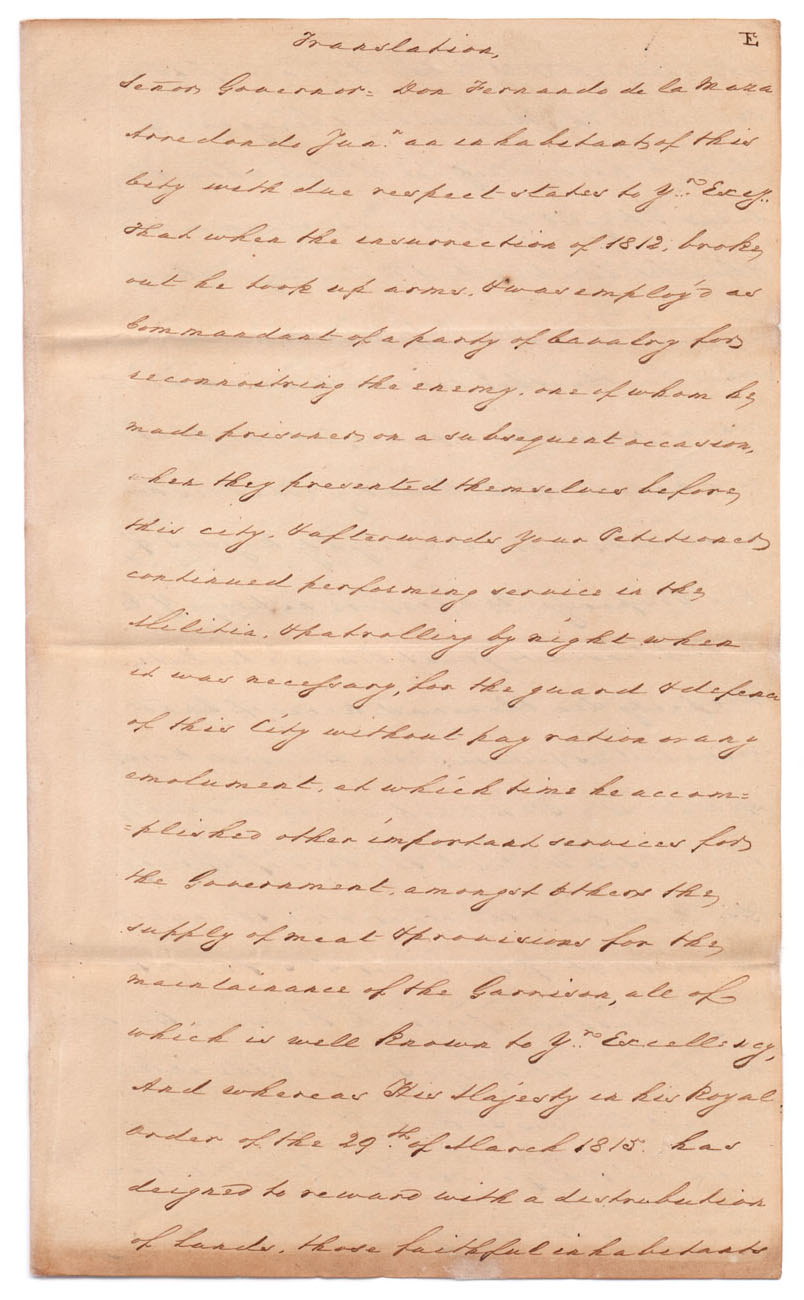 Translation,
E
Señor Governor = Don Fernando de la Maza
Arredondo Junr. an inhabitant of this
City with due respect states to Yr. Excy.
That when the insurrection of 1812, broke
out he took up arms, & was employ'd as
Commandant of a party of Cavalry for
reconnoitring the enemy, one of whom he
made prisoner, on a subsequent occasion,
when they presented themselves before
this city, & afterwards your Petitioner
continued performing service in the
Militia, & patrolling by night when
it was necessary, for the guard & defence
of this City without pay ration or any
emolument, at which time he accom=
=plished other important services for
the Government, amongst others the
supply of meat & provisions for the
maintainance of the Garrison, all of
which is well known to Yr. Excellency,
And whereas His Majesty in his Royal
order of the 29th. of March 1815. has
deigned to reward with a distrubution
of lands, those faithful inhabitants